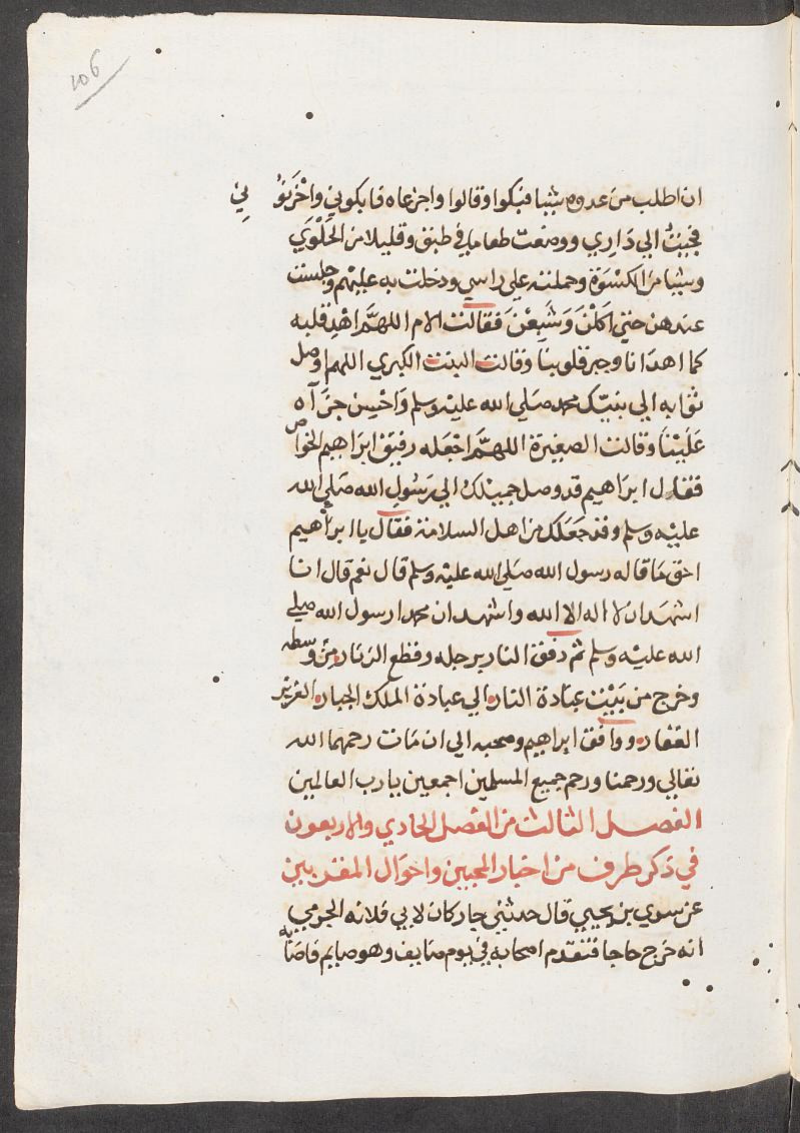 106
ان اطلب من عدوه شيئا فبكوا وقالوا واجزعاه فابكوني واحزنو ني
فجيت الي داري ووضعت طعاما في طبق وقليلا من الحلوي
وشيئا من الكسوة وحملته علي راسي ودخلت به عليهم وجلست
عندهن حتي اكلن وشبعن فقالت الام اللهم اهد قلبه
كما اهدانا وجبر قلوبنا وقالت البنت الكبري اللهم اوصل
ثوابه الي نبيك محمد صلي الله عليه وسلم واحسن جزآاه
علينا وقالت الصغيرة اللهم اجعله رفيق ابراهيم الخواص
فقال ابراهيم قد وصل جميلك الي رسول الله صلي الله
عليه وسلم وقد جعلك من اهل السلامة فقال يا ابراهيم
احق ما قاله رسول الله صلي الله عليه وسلم قال نعم قال انا
اشهد ان لا اله الا الله واشهد ان محمدا رسول الله صلي
الله عليه وسلم ثم دفق النار برجله وقطع الزنار من وسطه
وخرج من بيت عبادة النار الي عبادة الملك الجبار العزيز
الغفار ووافق ابراهيم وصحبه الي ان مات رحمهما الله
تعالي ورحمنا ورحم جميع المسلمين اجمعين يا رب العالمين
الفصل الثالث من الفصل الحادي والاربعون
في ذكر طرف من اخبار المحبين واحوال المقربين
عن سوي بن يحيي قال حدثني جار كان لابي قلابه الجرمي
انه خرج حاجا فتقدم اصحابه في يوم صايف وهو صايم فاصابه